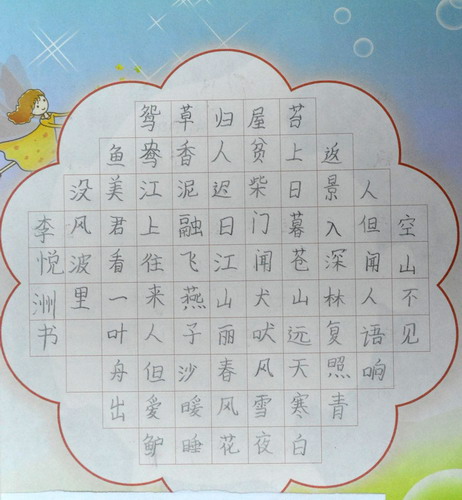 空山不见
人但闻人语响
返景入深林复照青
苔上日暮苍山远天寒白
屋贫柴门闻犬吠风雪夜
归人迟日江山丽春风花
草香泥融飞燕子沙暖睡
鸳鸯江上往来人但爱鲈
鱼美君看一叶舟出
没风波里
李悦洲书